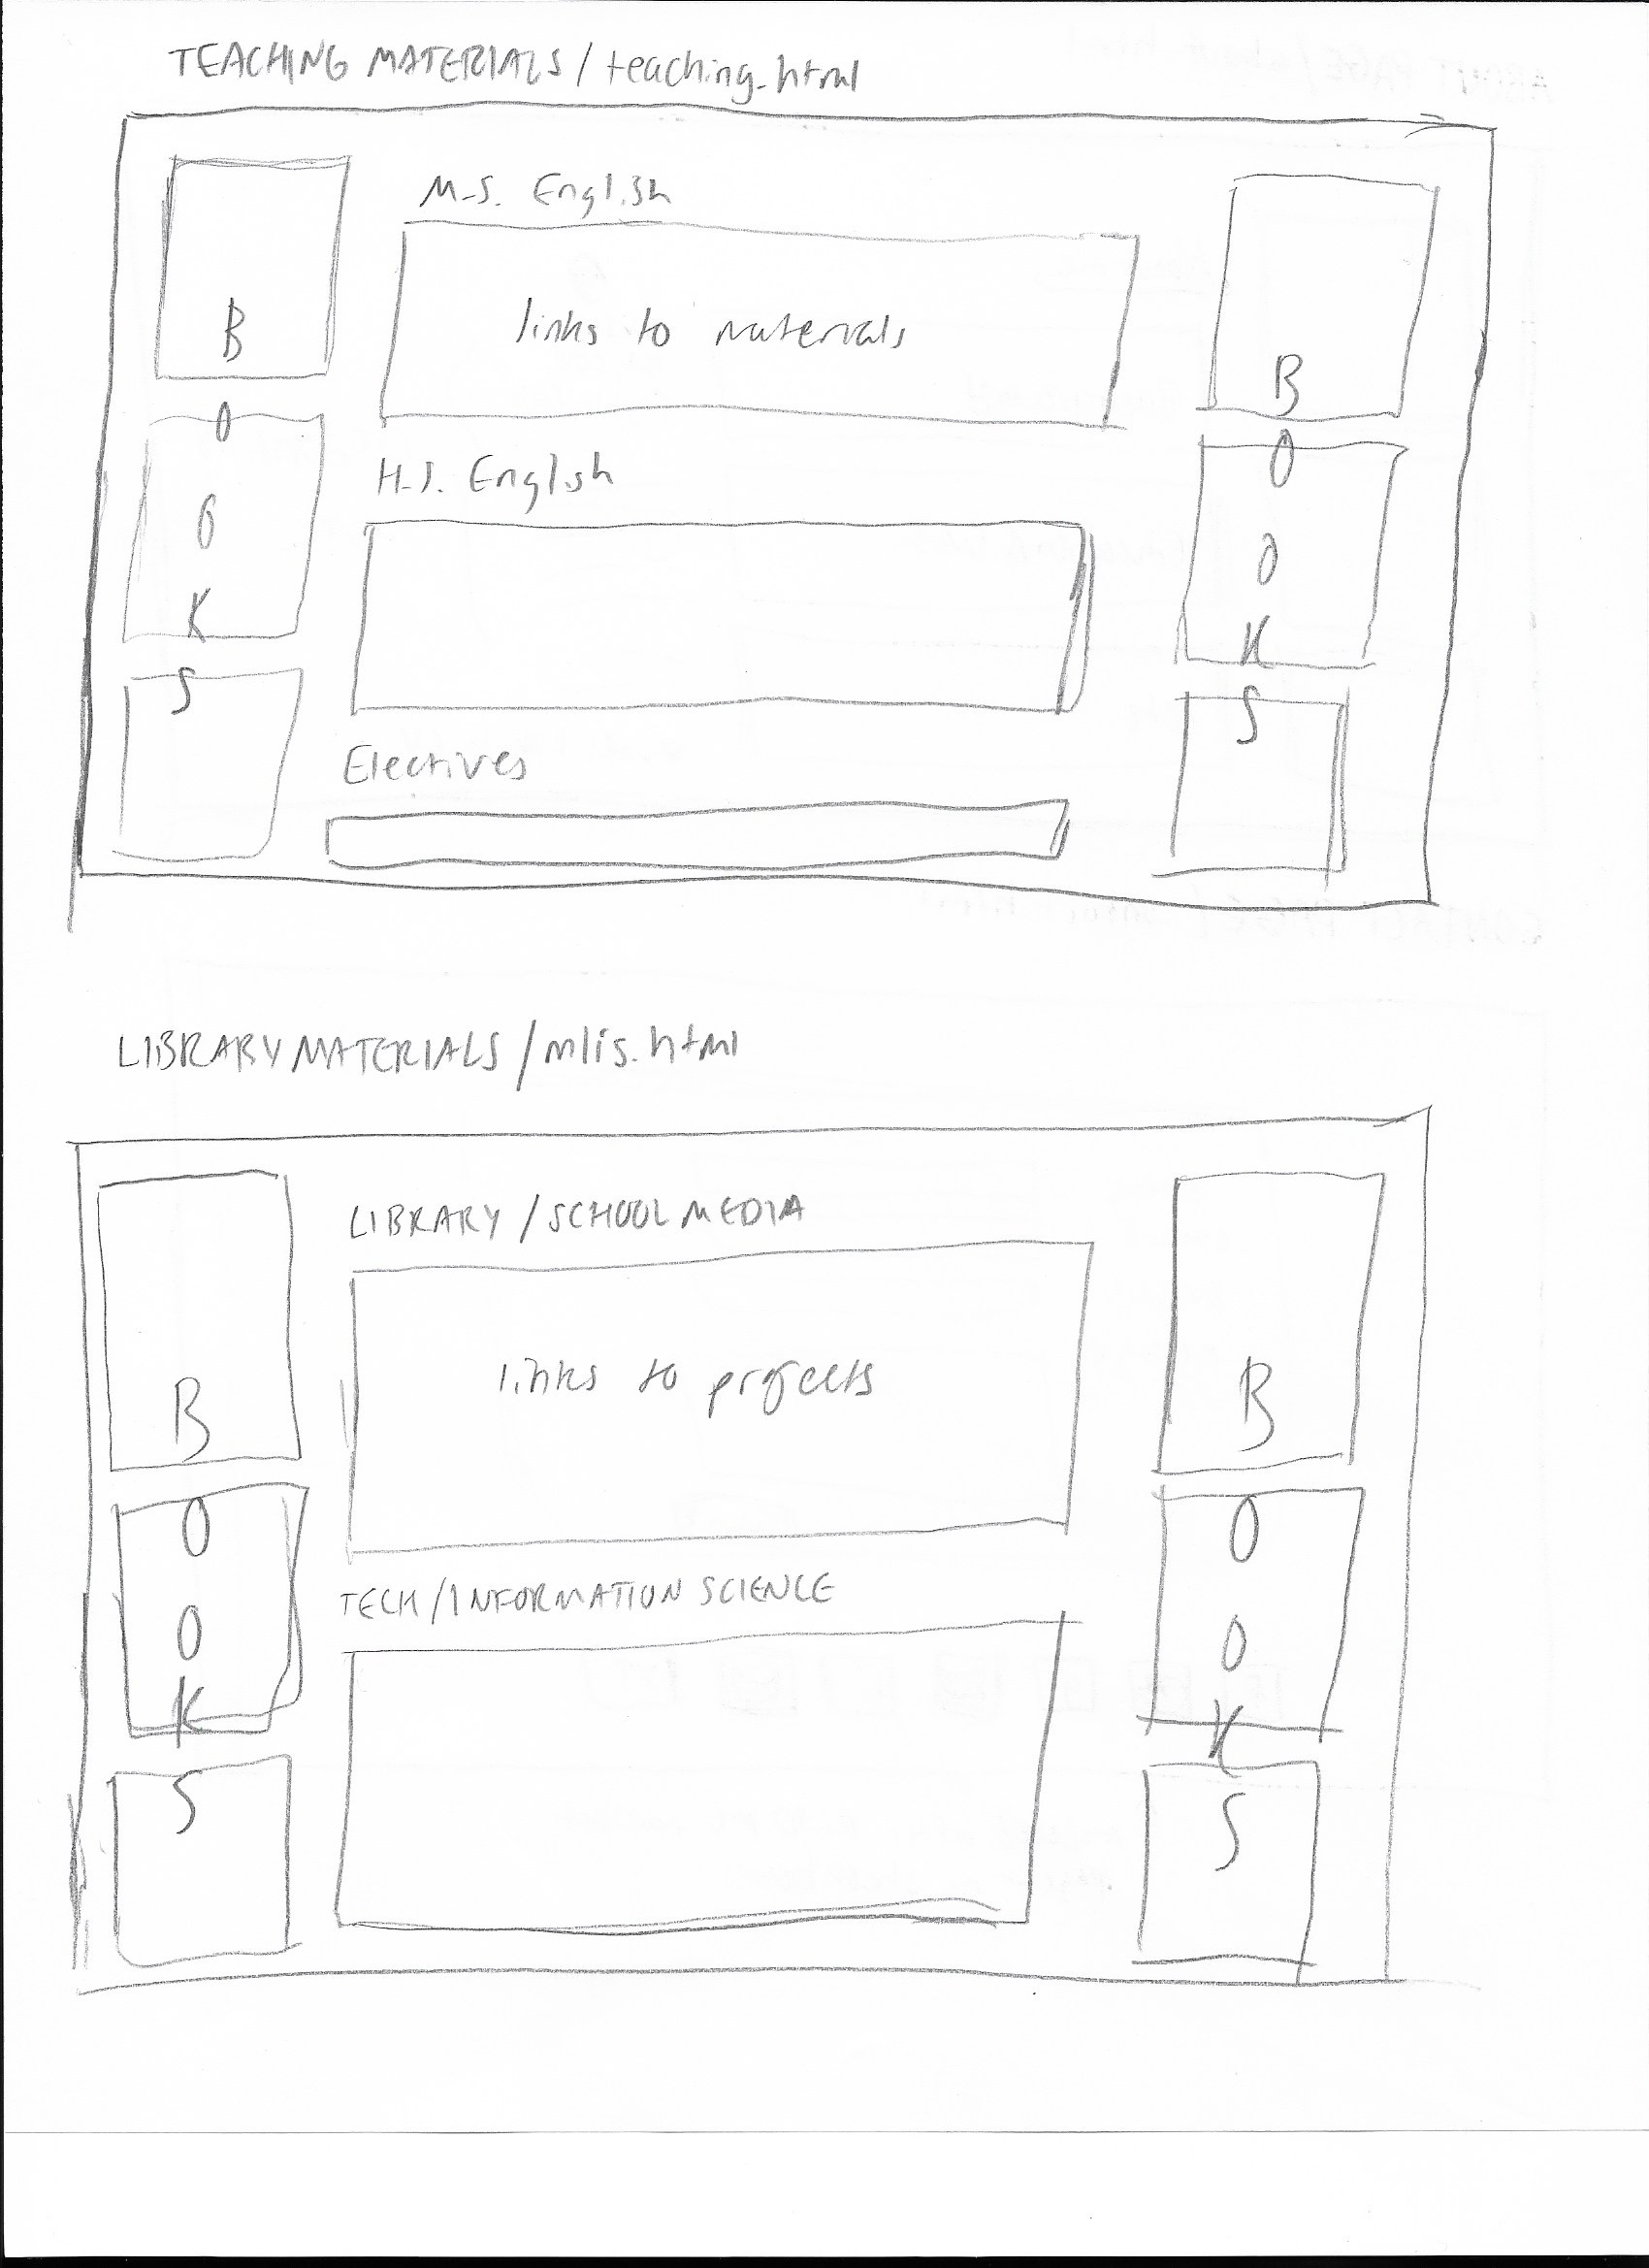 TEACHING MATERIALS / teaching.html
M.S. English
links to materials
H.S. English
Electives
B
O
O
K
S
B
O
O
K
S
LIBRARY MATERIALS / mlis.html
LIBRARY / SCHOOL MEDIA
links to projects
TECH / INFORMATION SCIENCE
B
O
O
K
S
B
O
O
K
S